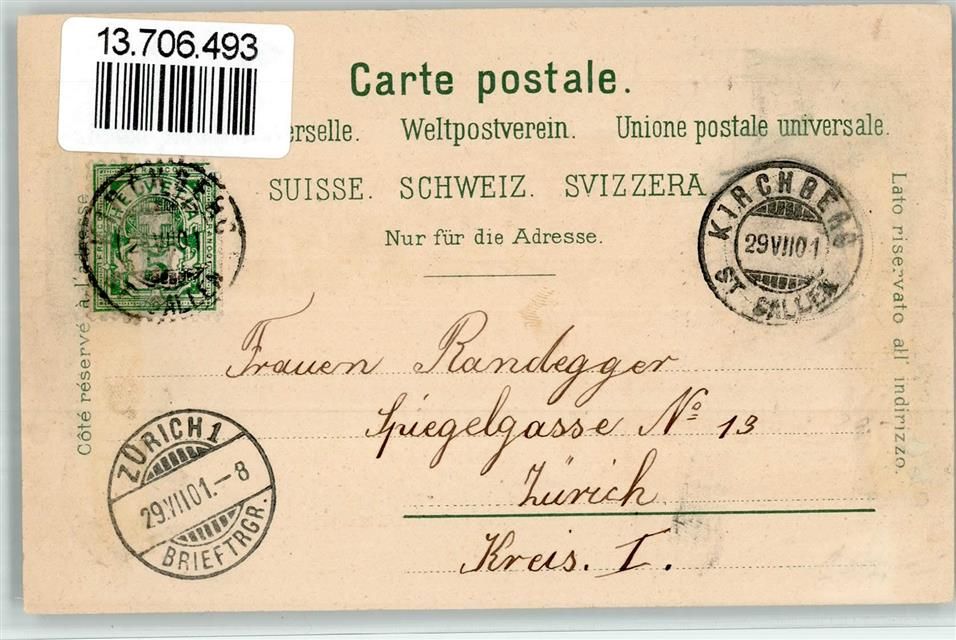 13.706.493
Carte postale.
erselle. Weltpostverein. Unione postale universale.
SUISSE. SCHWEIZ. SVIZZERA.
Nur für die Adresse.
Côté réservé à l'adresse.
Lato riservato all' indirizzo.
HELVETIA
KIRCHBERG
29 VII 01
ST. GALLEN
Frauen Randegger
Spiegelgasse No 13
Zürich
Kreis. I.
ZÜRICH 1
29.VII.01.-8
BRIEFTRGR.